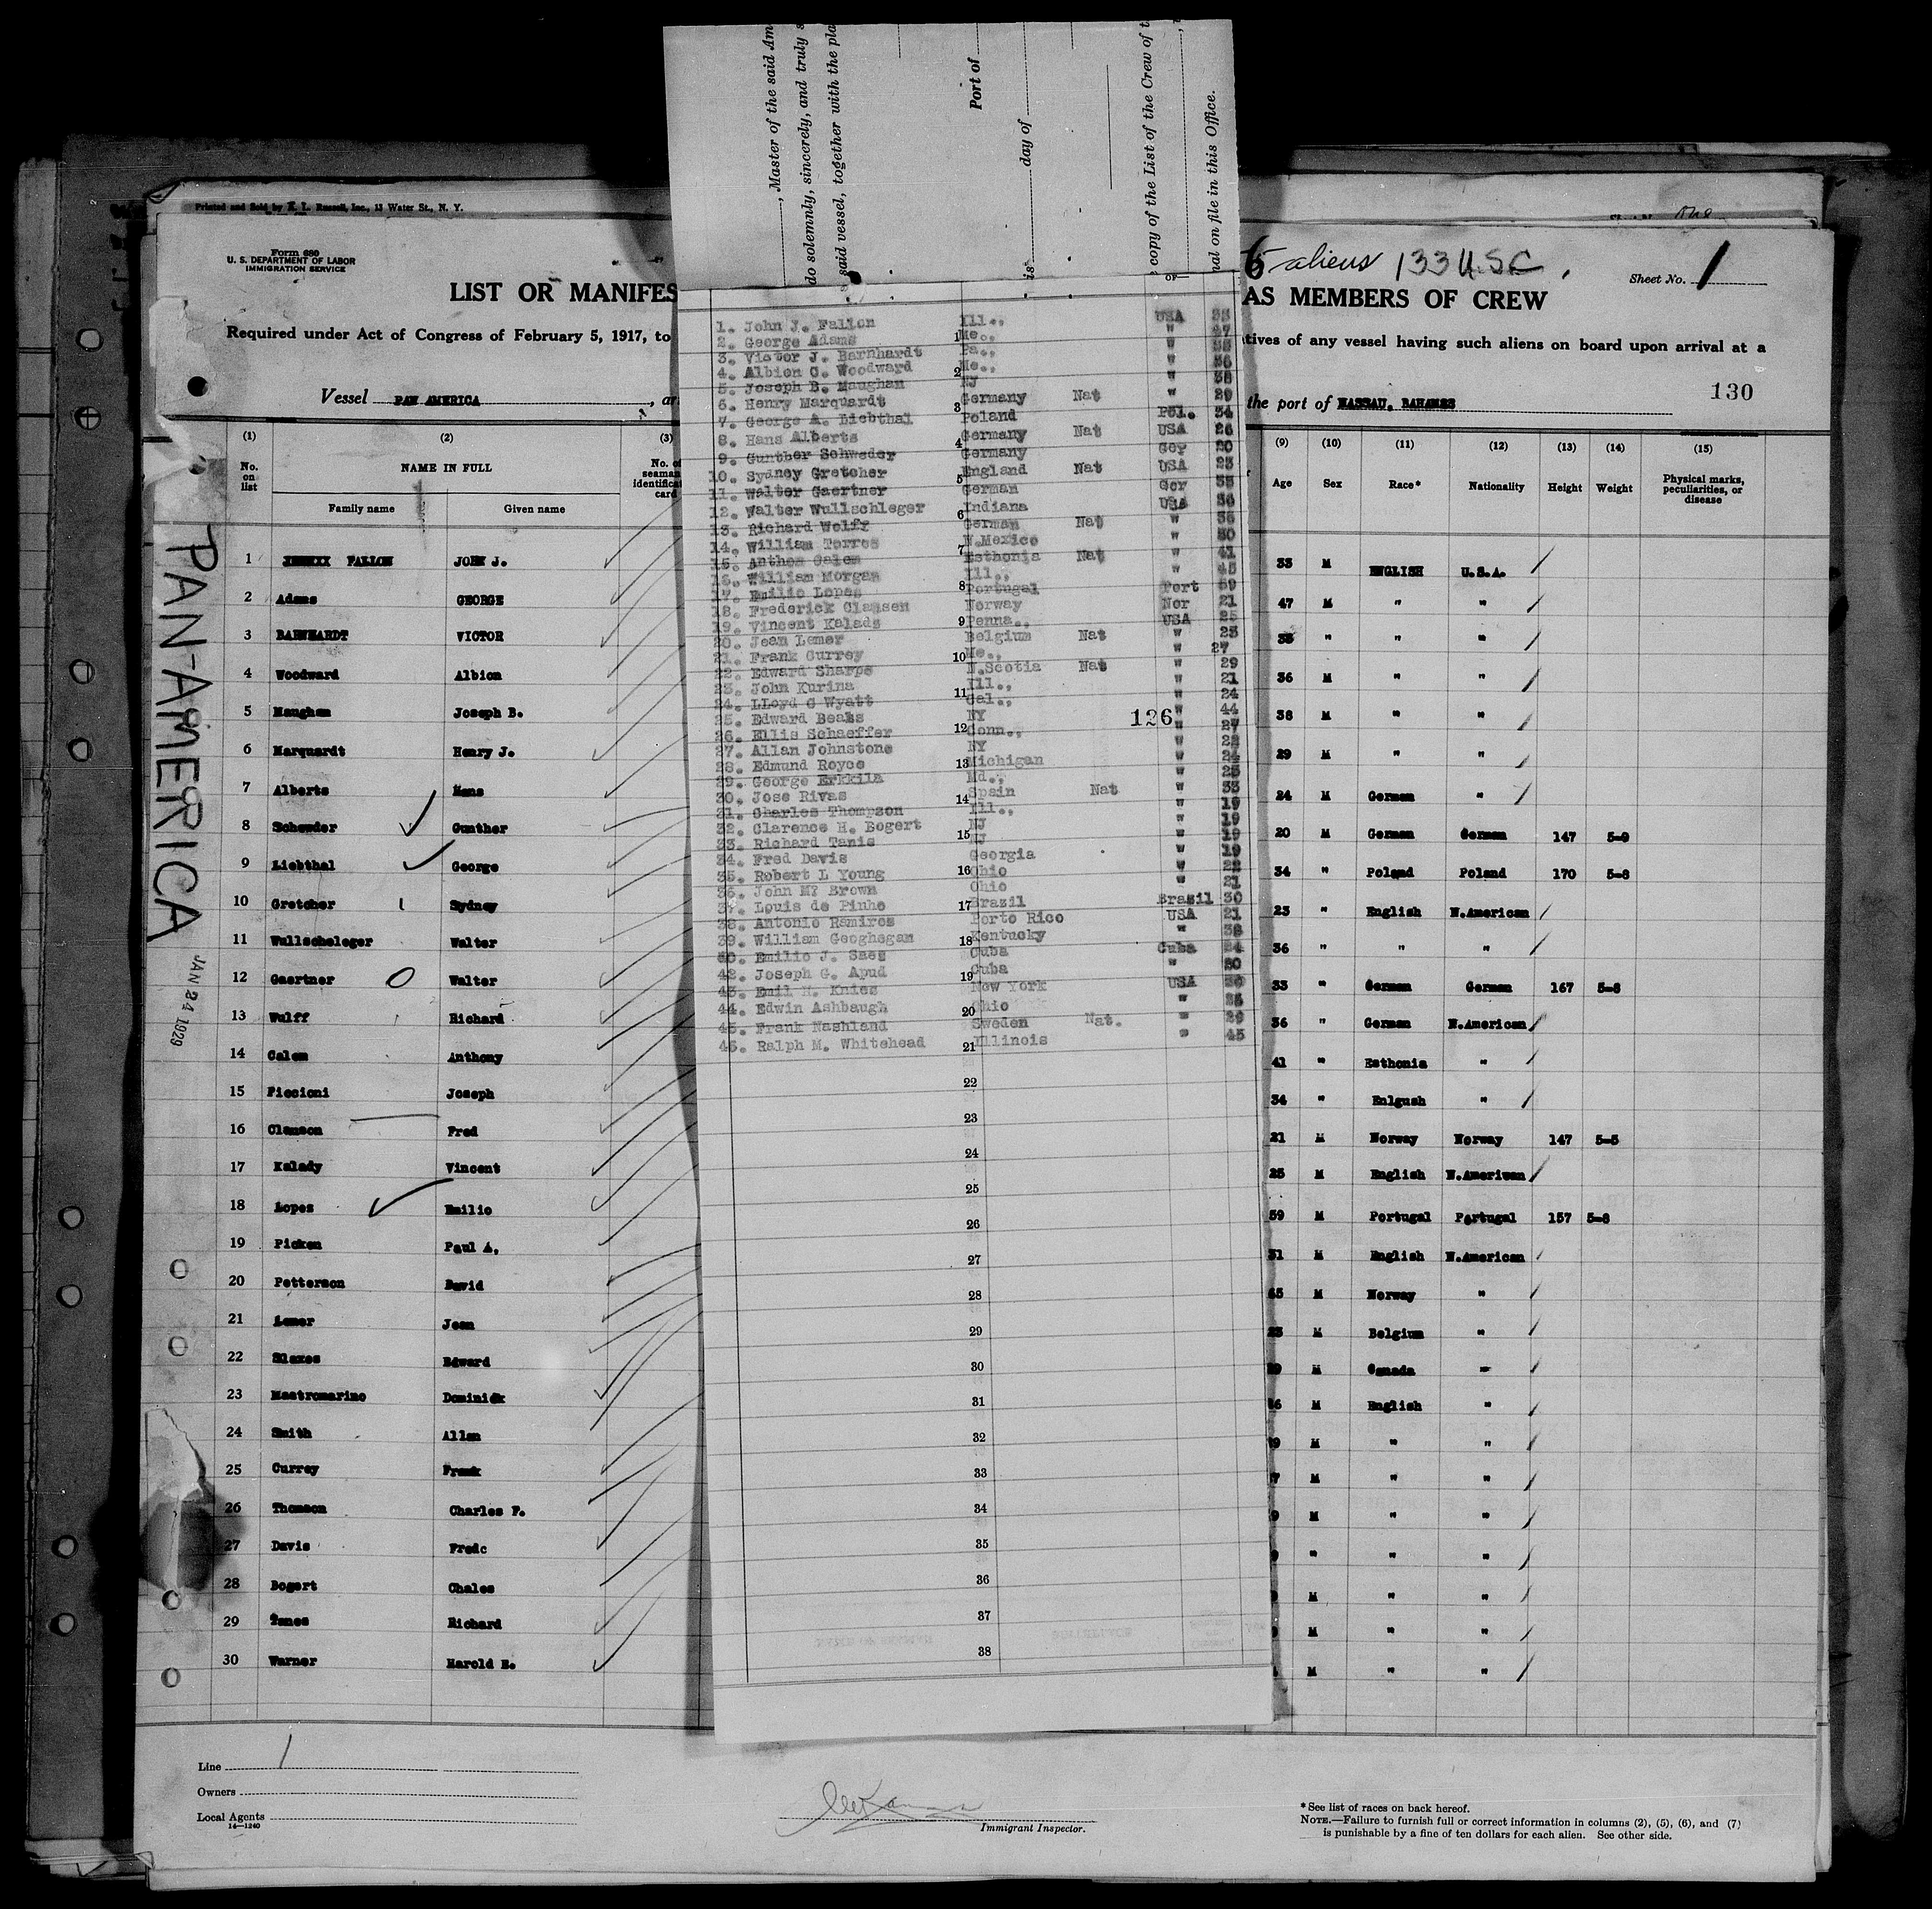 Printed and Sold by E. L. Russell, Inc., 13 Water St., N. Y.
Form 680
U. S. DEPARTMENT OF LABOR
IMMIGRATION SERVICE
LIST OR MANIFES
AS MEMBERS OF CREW
aliens 133 U.S.C.
Sheet No. 1
Required under Act of Congress of February 5, 1917, to
tives of any vessel having such aliens on board upon arrival at a
Vessel PAN AMERICA, ar
the port of NASSAU, BAHAMAS
130
PAN-AMERICA
JAN 24 1929
(1) (2) (3)
No. on list
NAME IN FULL
Family name Given name
No. of
seaman
identificat
card
(9) (10) (11) (12) (13) (14) (15)
Age Sex Race* Nationality Height Weight Physical marks, peculiarities, or disease
1 FALLON JOHN J. 33 M ENGLISH U.S.A.
2 Adams GEORGE 47 M " "
3 BARNHARDT VICTOR 35 " " "
4 Woodward Albion 36 M " "
5 Maughan Joseph B. 38 M " "
6 Marquardt Henry J. 29 M " "
7 Alberts Hans 24 M German "
8 Schewder Gunther 20 M German German 147 5-9
9 Liebthal George 34 " Poland Poland 170 5-8
10 Gretcher Sydney 23 " English N.American
11 Wullscheleger Walter 36 " " "
12 Gaertner Walter 33 " German German 167 5-8
13 Wulff Richard 36 " German N.American
14 Calem Anthony 41 " Esthonia "
15 Piccioni Joseph 34 " Enlgush "
16 Clanson Fred 21 M Norway Norway 147 5-5
17 Kalady Vincent 25 M English N.Ameriwan
18 Lopes Emilio 59 M Portugal Portugal 157 5-8
19 Picken Paul A. 31 M English N.American
20 Petterson David M Norway "
21 Lemer Jean M Belgium "
22 Slaxes Edward M Canada "
23 Mastromarino Dominick M English "
24 Smith Allan M " "
25 Currey Frank M " "
26 Thomson Charles F. M " "
27 Davis Fredc " " "
28 Bogert Chales M " "
29 Tanes Richard M " "
30 Warner Harold E. M " "
, Master of the said Am
do solemnly, sincerely, and truly s
said vessel, together with the pla
Port of
is day of
copy of the List of the Crew of t
nal on file in this Office.
OF—
1. John J. Fallon Ill., USA 33
2. George Adams Me., " 47
3. Victor J. Barnhardt Pa., " 35
4. Albion C. Woodward Me., " 36
5. Joseph B. Maughan NJ " 38
6. Henry Marquardt Germany Nat " 29
7. George A. Liebthal Poland Pol. 34
8. Hans Alberts Germany Nat USA 24
9. Gunther Schweder Germany Ger 20
10. Sydney Gretcher England Nat USA 23
11. Walter Gaertner German Ger 33
12. Walter Wullschleger Indiana USA 36
13. Richard Wolff German Nat " 36
14. William Torres N.Mexico " 30
15. Anthom Calem Esthonia Nat " 41
16. William Morgan Ill., " 45
17. Emilio Lopes Portugal Port 59
18. Frederick Clansen Norway Nor 21
19. Vincent Kalads Penna., USA 25
20. Jean Lemer Belgium Nat " 23
21. Frank Currey Me., " 27
22. Edward Sharpe N.Scotia Nat " 29
23. John Kurina Ill., " 21
24. LLoyd G Wyatt Cal., " 24
25. Edward Beahs NY " 44
26. Ellis Schaeffer Conn., " 27
27. Allan Johnstone NY " 22
28. Edmund Royce Michigan " 24
29. George Erkkila Md., " 23
30. Jose Rivas Spain Nat " 33
31. Charles Thompson Ill., " 19
32. Clarence H. Bogert NJ " 19
33. Richard Tanis NJ " 19
34. Fred Davis Georgia " 19
35. Robert L Young Ohio " 22
36. John M? Brown Ohio " 21
37. Louis de Pinho Brazil Brazil 30
38. Antonio Ramiros Porto Rico USA 21
39. William Geoghegan Kentucky " 38
40. Emilio J. Saes Cuba Cuba 24
42. Joseph G. Apud Cuba " 30
43. Emil H. Knies New York USA
44. Edwin Ashbaugh Ohio "
45. Frank Nashland Sweden Nat. " 29
46. Ralph M. Whitehead Illinois " 45
126
1
2
3
4
5
6
7
8
9
10
11
12
13
14
15
16
17
18
19
20
21
22
23
24
25
26
27
28
29
30
31
32
33
34
35
36
37
38
Line 1
Owners
Local Agents
14—1240
Immigrant Inspector.
* See list of races on back hereof.
NOTE.—Failure to furnish full or correct information in columns (2), (5), (6), and (7)
is punishable by a fine of ten dollars for each alien. See other side.